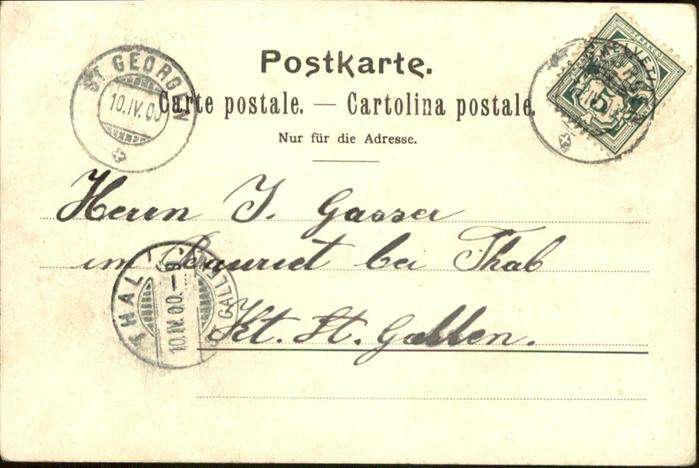 Postkarte.
Carte postale. — Cartolina postale.
Nur für die Adresse.
ST GEORGEN
10.IV.00
HELVETIA
5
Herrn J. Gasser
im Bauriet bei Thal
Kt. St. Gallen.
THAL
10.IV.00.-9